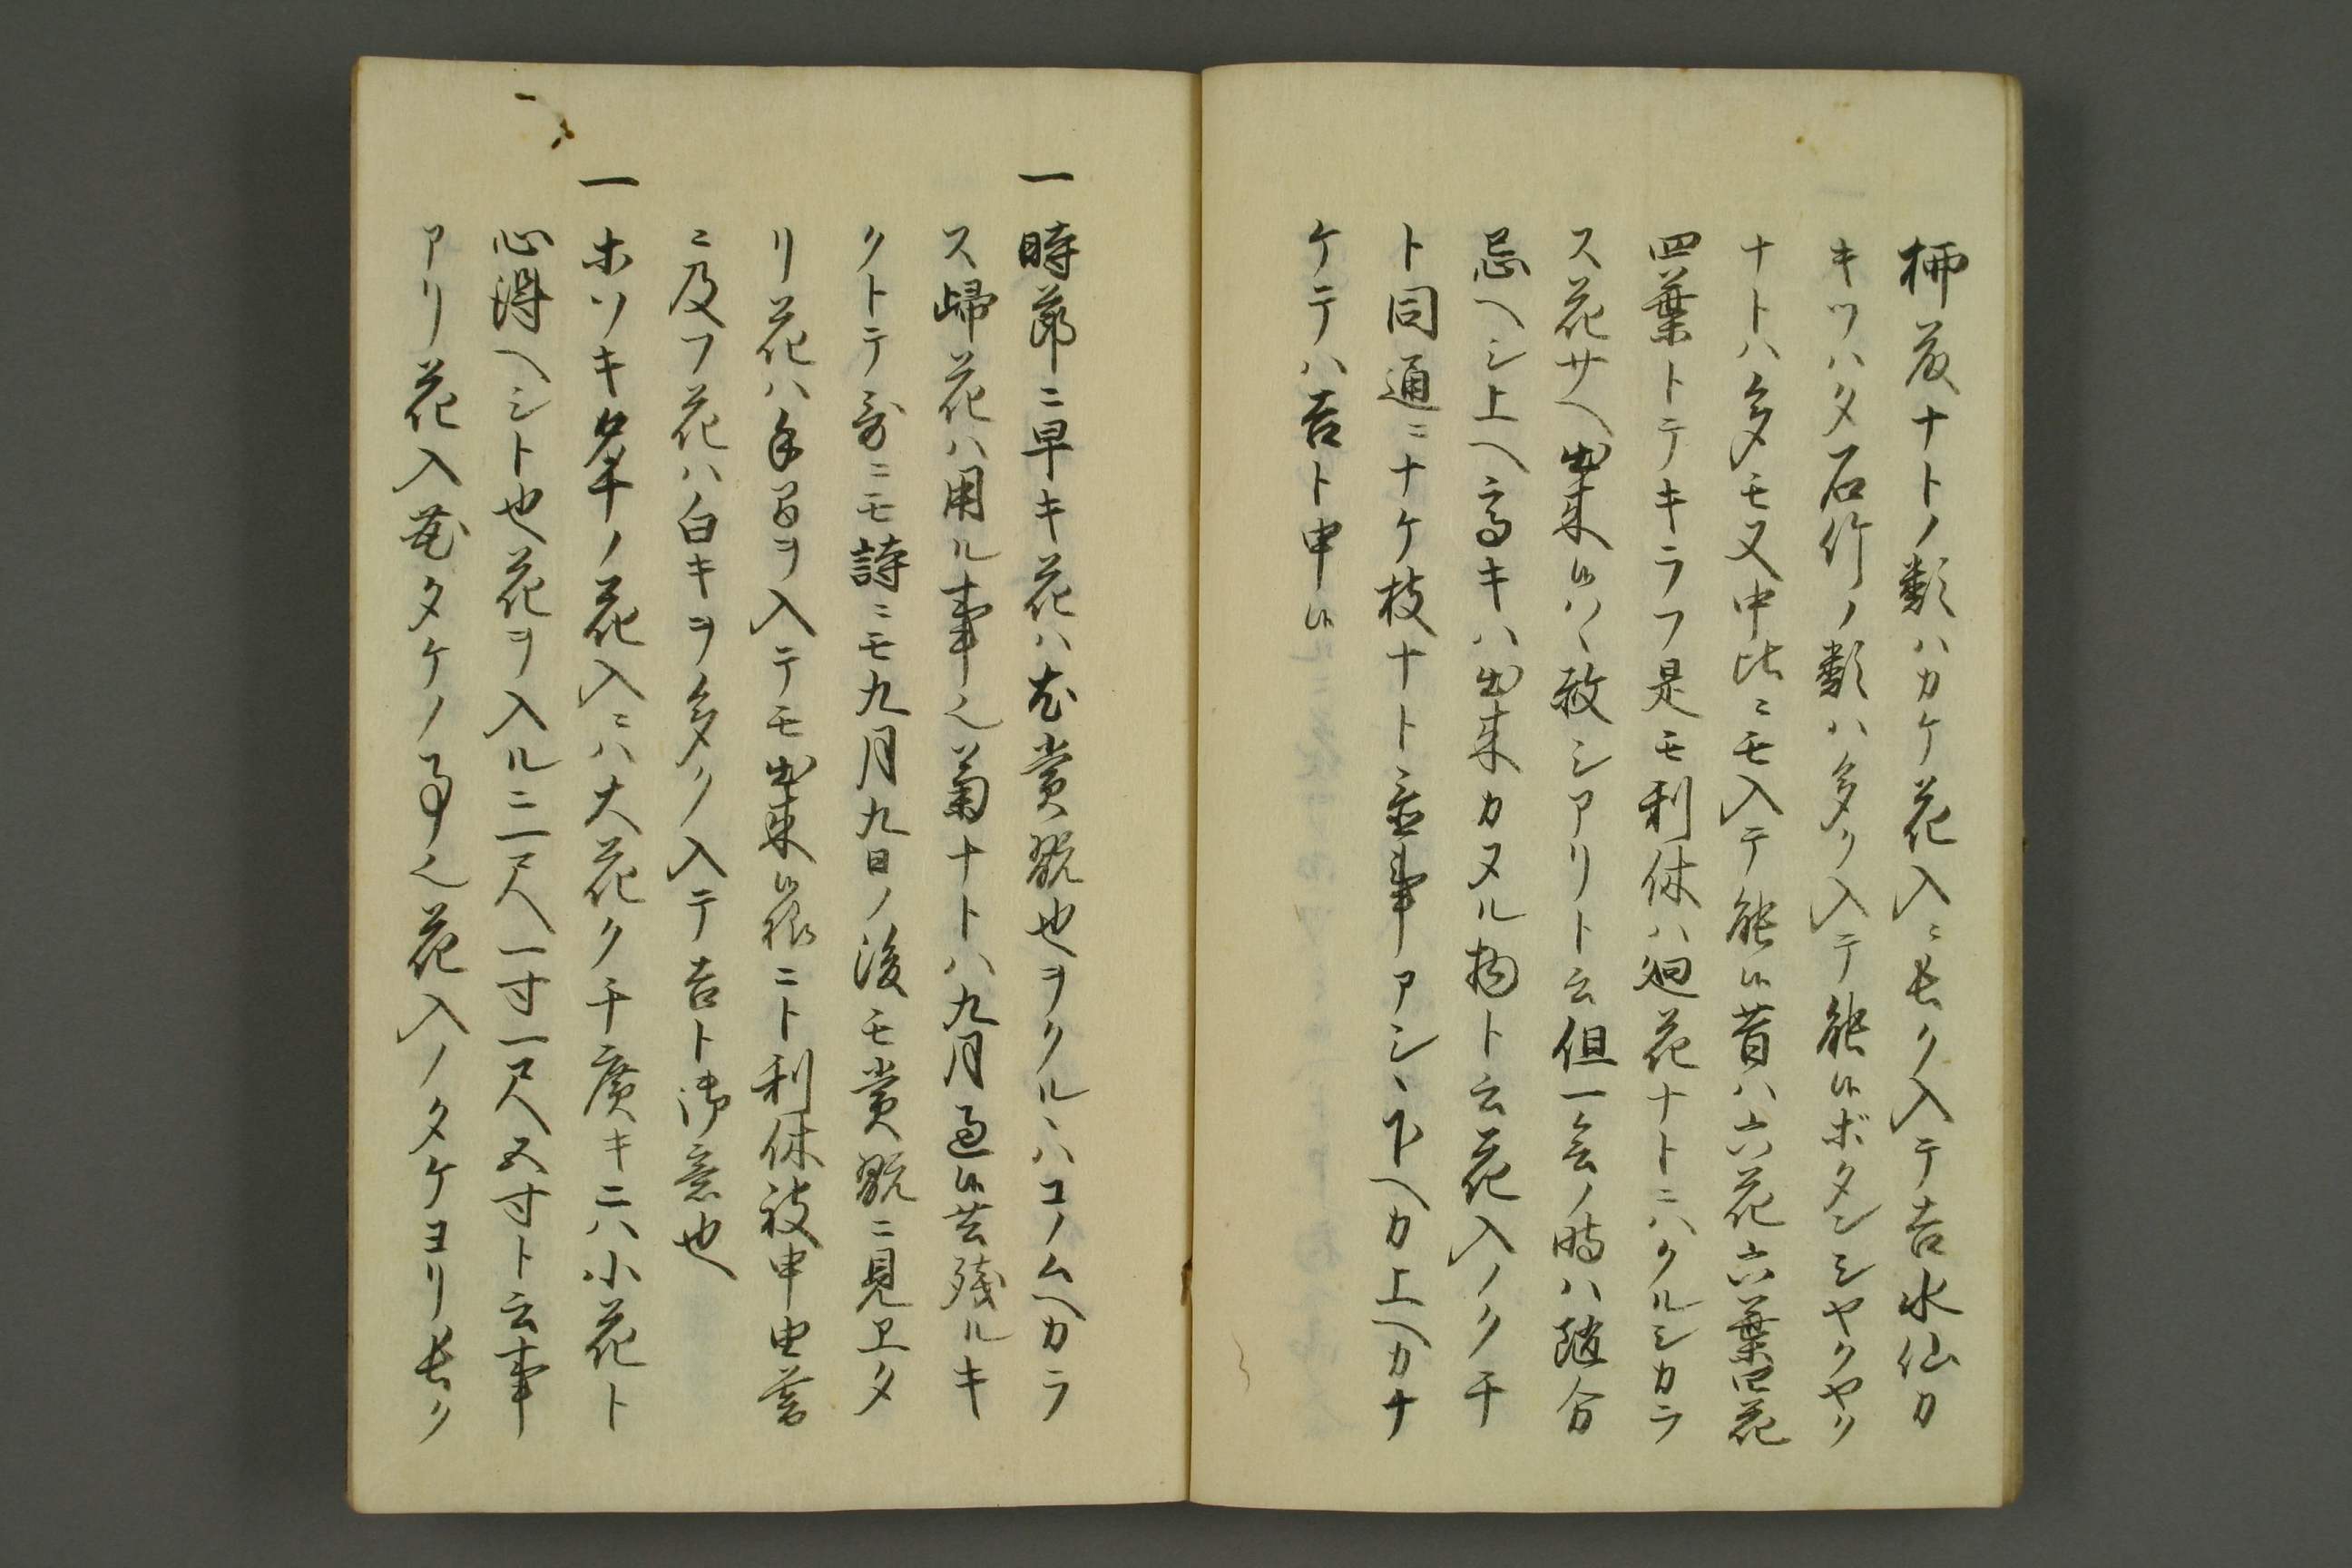 柳藤ナトノ類ハカケ花入ニ長ク入テ吉水仙カ
キツハタ石竹ノ類ハ多ク入テ能候ボタンシヤクヤク
ナトハ多モ又中比ニモ入テ能候昔ハ六花六葉四花
四葉トテキラフ是モ利休ハ廻花ナトニハクルシカラ
ス花サヘ出来候ハヽ致シアリト云但一会ノ時ハ随分
忌ヘシ上ヘ高キハ出来カヌル物ト云花入ノクチ
ト同通ニナケ枝ナト悪事アシヽ下ヘカ上ヘカナ
ケテハ吉ト申候
一時節ニ早キ花ハ尤賞翫也ヲクルヽハコノムヘカラ
ス帰花ハ用ル事也菊ナトハ九月過候共残ルキ
クトテ哥ニモ詩ニモ九月九日ノ後モ賞翫ニ見エタ
リ花ハ手習ヲ入テモ出来候様ニト利休被申由暮
ニ及フ花ハ白キヲ多ク入テ吉ト御意也
一ホソキ名半ノ花入ニハ大花クチ廣キニハ小花ト
心得ヘシト也花ヲ入ル二三尺一寸一尺五寸ト云事
アリ花入花タケノ事也花入ノタケヨリ長ク